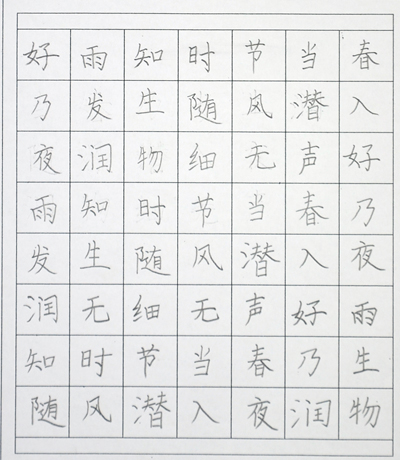 好雨知时节当春
乃发生随风潜入
夜润物细无声好
雨知时节当春乃
发生随风潜入夜
润无细无声好雨
知时节当春乃生
随风潜入夜润物